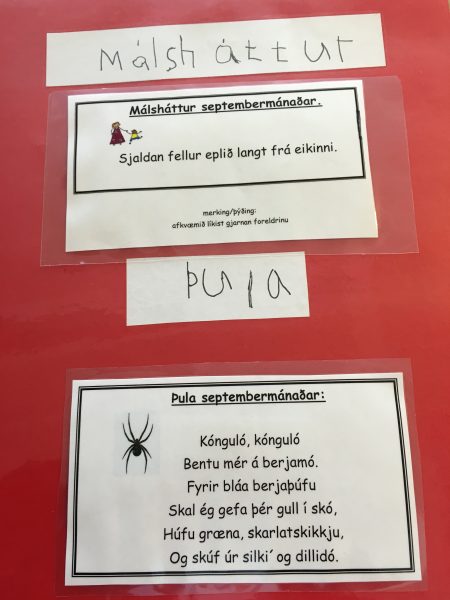 Málsháttur
Málsháttur septembermánaðar.
Sjaldan fellur eplið langt frá eikinni.
merking/þýðing:
afkvæmið líkist gjarnan foreldrinu
Þula
Þula septembermánaðar:
Kónguló, kónguló
Bentu mér á berjamó.
Fyrir bláa berjaþúfu
Skal ég gefa þér gull í skó,
Húfu græna, skarlatskikkju,
Og skúf úr silki´og dillidó.